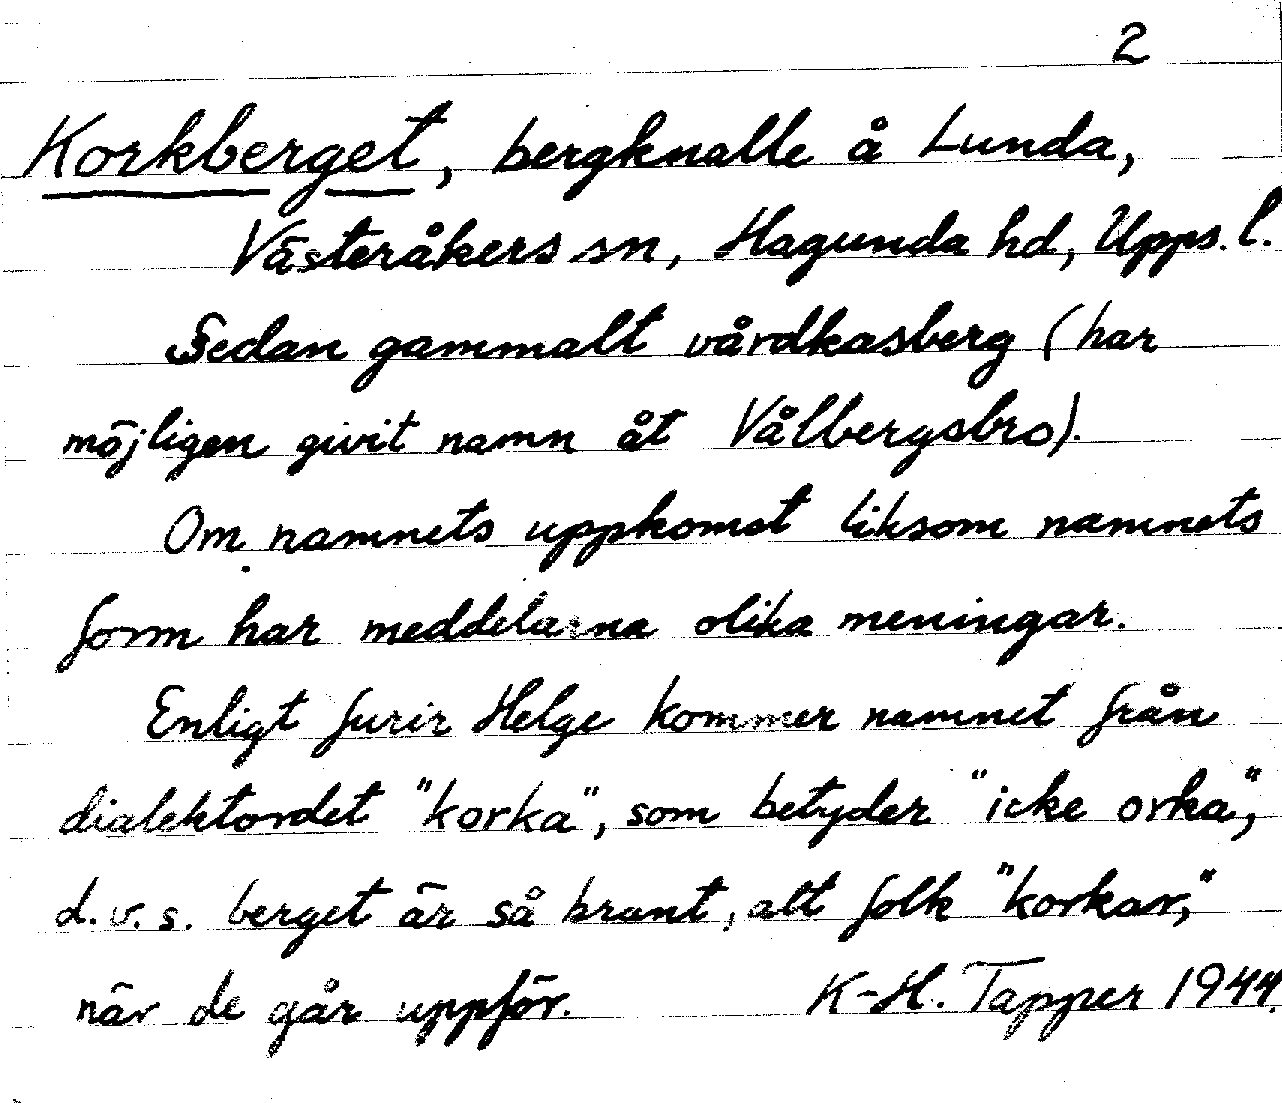 2
Korkberget, bergknalle å Lunda,
Västeråkers sn, Hagunda hd, Upps. l.
Sedan gammalt vårdkasberg (har
möjligen givit namn åt Vålbergsbro).
Om namnets uppkomst liksom namnets
form har meddelarna olika meningar.
Enligt furir Helge kommer namnet från
dialektordet "korka", som betyder "icke orka",
d.v.s. berget är så brant, att folk "korkar,"
när de går uppför. K-H. Tapper 1944.